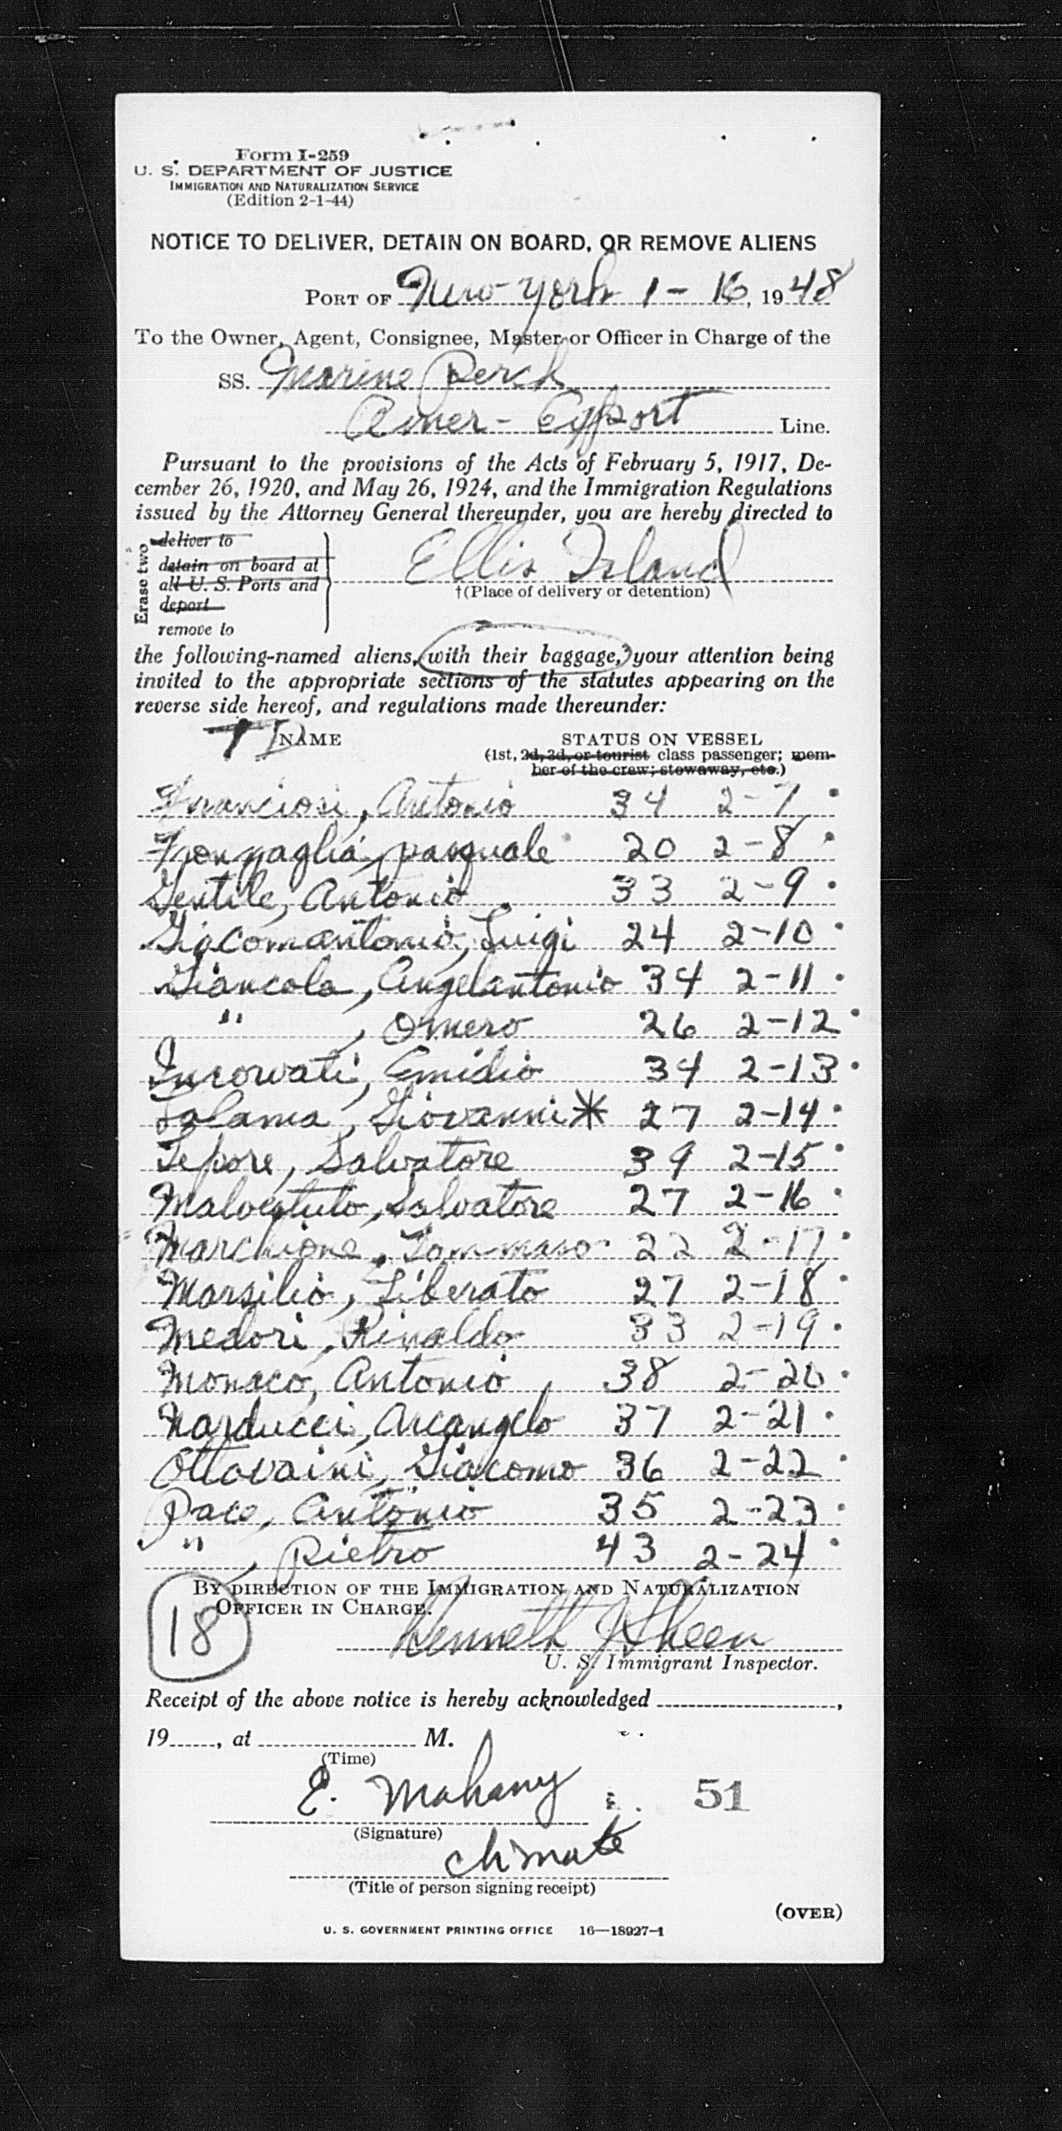 Form I-259
U. S. DEPARTMENT OF JUSTICE
IMMIGRATION AND NATURALIZATION SERVICE
(Edition 2-1-44)
NOTICE TO DELIVER, DETAIN ON BOARD, OR REMOVE ALIENS
PORT OF New York 1 - 16, 1948
To the Owner, Agent, Consignee, Master or Officer in Charge of the
SS. Marine Perch
Amer - Export Line.
Pursuant to the provisions of the Acts of February 5, 1917, De-
cember 26, 1920, and May 26, 1924, and the Immigration Regulations
issued by the Attorney General thereunder, you are hereby directed to
Erase two
deliver to
detain on board at
all U. S. Ports and
deport
remove to
Ellis Island
†(Place of delivery or detention)
the following-named aliens, with their baggage, your attention being
invited to the appropriate sections of the statutes appearing on the
reverse side hereof, and regulations made thereunder:
NAME STATUS ON VESSEL
(1st, 2d, 3d, or tourist class passenger; mem-
ber of the crew; stowaway, etc.)
Franciosi, Antonio 34 2-7
pasquale 20 2-8
Gentile, Antonio 33 2-9
Giacomantonio, Luigi 24 2-10
Giancola, Angelantonio 34 2-11
" , Omero 26 2-12
Emidio 34 2-13
Giovanni * 27 2-14
Lepore, Salvatore 39 2-15
Salvatore 27 2-16
Marchione, Tommaso 22 2-17
Marsilio, Liberato 27 2-18
Medori, Rinaldo 33 2-19
Monaco, Antonio 38 2-20
Narducci, Arcangelo 37 2-21
Giacomo 36 2-22
Pace, Antonio 35 2-23
" , Pietro 43 2-24
BY DIRECTION OF THE IMMIGRATION AND NATURALIZATION
OFFICER IN CHARGE.
18
Kenneth J Sheen
U. S. Immigrant Inspector.
Receipt of the above notice is hereby acknowledged ,
19 , at M.
(Time)
E. Mahany
51
(Signature)
ch mate
(Title of person signing receipt)
(OVER)
U. S. GOVERNMENT PRINTING OFFICE 16—18927-1